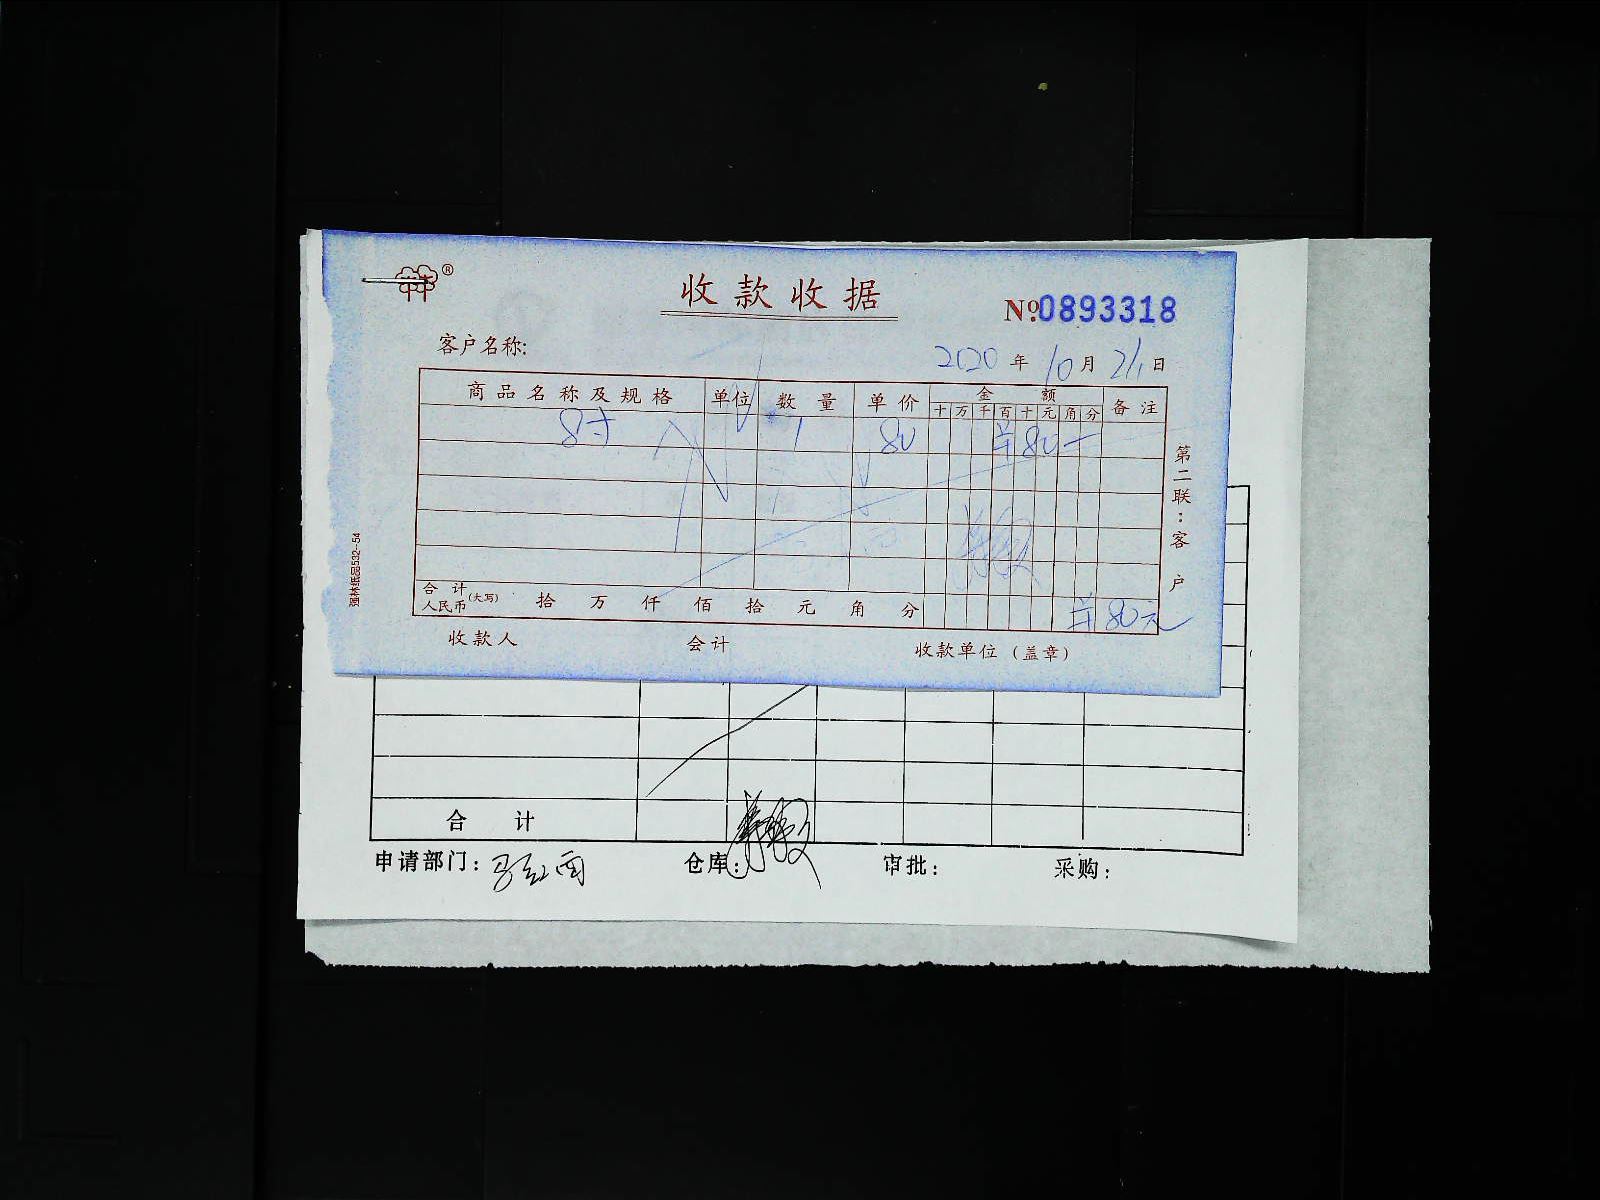 ®
收款收据
№0893318
客户名称:
2020年10月21日
商品名称及规格 单位 数量 单价 金额 备注
十万千百十元角分
8寸 1 80 ¥80—
合计人民币(大写) 拾 万 仟 佰 拾 元 角 分 ¥80元
收款人 会计 收款单位(盖章)
第二联:客户
强林纸品532-54
合计
申请部门: 仓库: 审批: 采购: